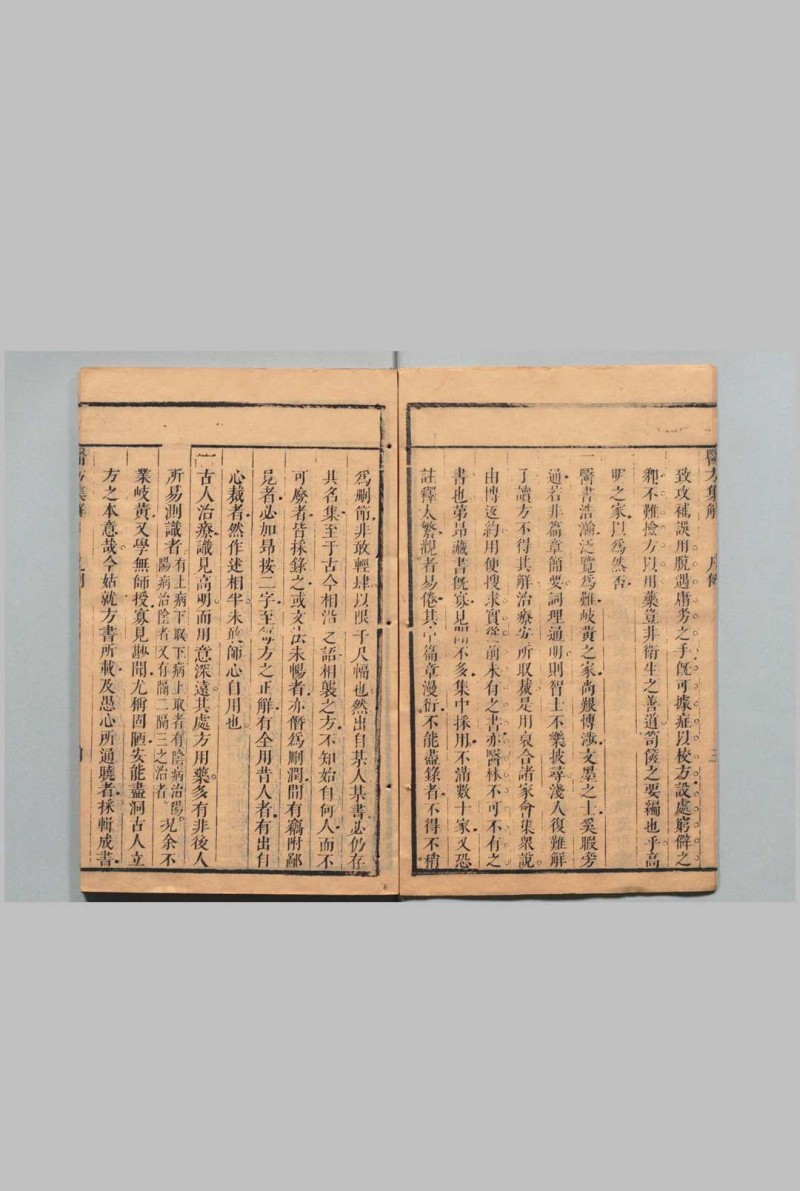 醫方集解
三
致攻補誤用脫遇庸劣之手旣可據症以校方設處窮僻之
鄕不難撿方以用藥豈非衛生之善道笥篋之要編也乎高
明之家以爲然否
一醫書浩瀚泛覽爲難岐黃之家尚艱博涉文墨之士奚暇旁
通若非篇章簡要詞理通明則智士不樂披尋淺人復難解
了讀方不得其解治療安所取裁是用裒合諸家會集衆說
由博返約用便搜求實從前未有之書亦醫林不可不有之
書也第昂藏書旣寡見聞不多集中採用不滿數十家又恐
註釋太繁觀者易倦其中篇章漫衍不能盡錄者不得不稍
爲刪節非敢輕肆以限于尺幅也然出自某人某書必仍存
其名集至于古今相沿之語相襲之方不知始自何人而不
可廢者皆採錄之或文法未暢者亦僭爲刪潤間有竊附鄙
見者必加昂按二字至每方之正解有全用昔人者有出自
心裁者然作述相半未敢師心自用也
一古人治療識見高明而用意深遠其處方用藥多有非後人
所易測識者有上病下取下病上取者有陰病治陽陽病治陰者又有隔二隔三之治者况余不
業岐黃又學無師授寡見尠聞尤稱固陋安能盡洞古人立
方之本意哉今姑就方書所載及愚心所通曉者採輯成書